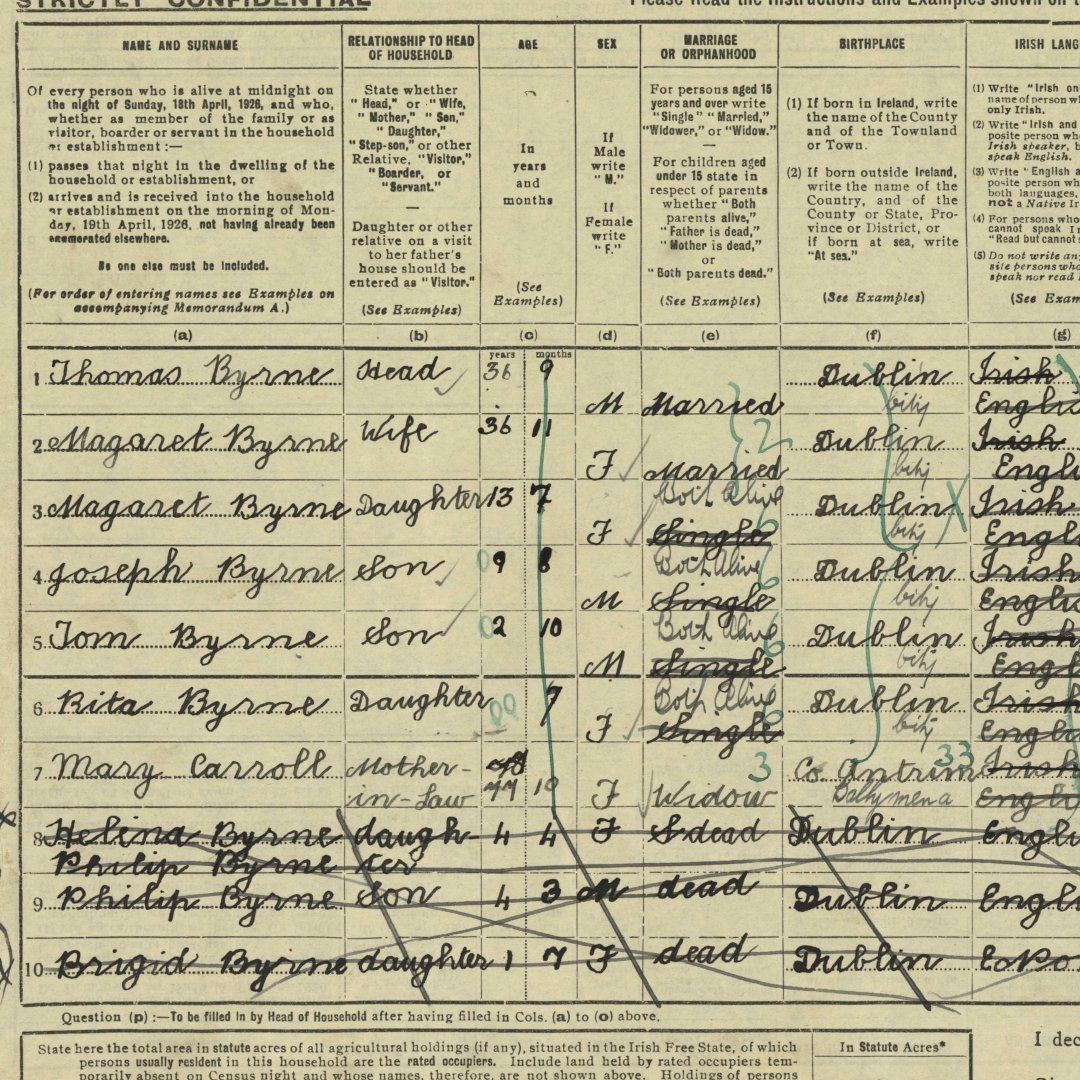 STRICTLY CONFIDENTIAL
Please Read the Instructions and Examples shown on
NAME AND SURNAME
RELATIONSHIP TO HEAD
OF HOUSEHOLD
AGE
SEX
MARRIAGE
OR ORPHANHOOD
BIRTHPLACE
IRISH LANG
Of every person who is alive at midnight on
the night of Sunday, 18th April, 1926, and who,
whether as member of the family or as
visitor, boarder or servant in the household
or establishment :—
(1) passes that night in the dwelling of the
household or establishment, or
(2) arrives and is received into the household
or establishment on the morning of Mon-
day, 19th April, 1926, not having already been
enumerated elsewhere.
No one else must be included.
(For order of entering names see Examples on
accompanying Memorandum A.)
State whether
"Head," or "Wife,
"Mother," "Son,"
"Daughter,"
"Step-son," or other
Relative, "Visitor,"
"Boarder, or
"Servant."
Daughter or other
relative on a visit
to her father's
house should be
entered as "Visitor."
(See Examples)
In
years
and
months
(See
Examples)
If
Male
write
"M."
If
Female
write
"F."
For persons aged 15
years and over write
"Single" "Married,"
"Widower," or "Widow."
For children aged
under 15 state in
respect of parents
whether "Both
parents alive,"
"Father is dead,"
"Mother is dead,"
or
"Both parents dead."
(See Examples)
(1) If born in Ireland, write
the name of the County
and of the Townland
or Town.
(2) If born outside Ireland,
write the name of the
Country, and of the
County or State, Pro-
vince or District, or
if born at sea, write
"At sea."
(See Examples)
(1) Write "Irish on
name of person w
only Irish.
(2) Write "Irish and
posite person who
Irish speaker, b
speak English.
(3) Write "English a
posite person wh
both languages,
not a Native Ir
(4) For persons who
cannot speak I
"Read but cannot
(5) Do not write any
site persons who
speak nor read
(See Exam
(a) (b) (c) (d) (e) (f) (g)
years months
1 Thomas Byrne Head 36 9 M Married Dublin Irish
City Englis
2 Magaret Byrne Wife 36 11 F Married Dublin Irish
City Engli
3 Magaret Byrne Daughter 13 7 F Both Alive Single Dublin Irish
City Engl
4 Joseph Byrne Son 9 8 M Both Alive Single Dublin Irish
City Englis
5 Tom Byrne Son 2 10 M Both Alive Single Dublin Irish
City Engl
6 Rita Byrne Daughter 00 7 F Both Alive Single Dublin Irish
City Englis
7 Mary Carroll Mother- 78 Co. Antrim 33 Irish
in-Law 77 10 F Widow 3 Ballymena Engli
8 Helena Byrne daugh- 4 4 F S dead Dublin Engli
Philip Byrne ter
9 Philip Byrne Son 4 3 M dead Dublin Engl
10 Brigid Byrne daughter 1 7 F dead Dublin
Question (p) :—To be filled in by Head of Household after having filled in Cols. (a) to (o) above.
State here the total area in statute acres of all agricultural holdings (if any), situated in the Irish Free State, of which
persons usually resident in this household are the rated occupiers. Include land held by rated occupiers tem-
porarily absent on Census night and whose names, therefore, are not shown above. Holdings of persons
In Statute Acres*
I dec